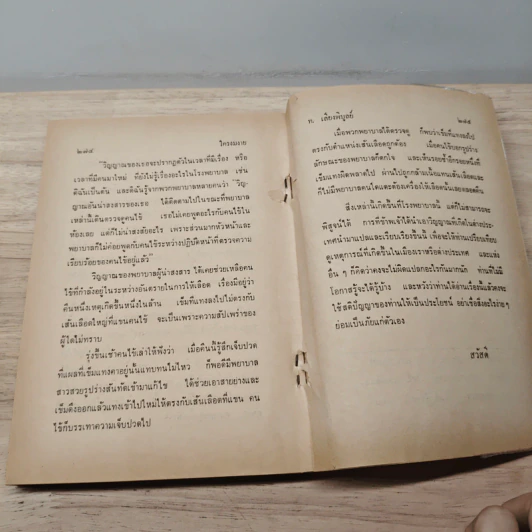 ๒๘๔ วิกรงมงาย
"วิญญาณของเธอจะปรากฏตัวในเวลาที่มีเรื่อง หรือ
เวลาที่มีคนมาใหม่ ที่ยังไม่รู้เรื่องอะไรในโรงพยาบาล เช่น
ดิฉันเป็นต้น และดิฉันรู้จากพวกพยาบาลหลายคนว่า "วิญ-
ญาณอันน่าสงสารของเธอ ได้ติดตามไปในขณะที่พยาบาล
เหล่านี้เดินตรวจดูคนไข้ เธอไม่เคยพูดอะไรกับคนไข้ใน
ห้องเลย แต่ก็ไม่น่าสงสัยอะไร เพราะส่วนมากหัวหน้าและ
พยาบาลก็ไม่ค่อยพูดกับคนไข้ระหว่างปฏิบัติหน้าที่ตรวจความ
เรียบร้อยของคนไข้อยู่แล้ว"
วิญญาณของพยาบาลผู้น่าสงสาร ได้เคยช่วยเหลือคน
ไข้ที่กำลังอยู่ในระหว่างอันตรายในการให้เลือด เรื่องมีอยู่ว่า
คืนหนึ่งเหตุเกิดขึ้นหนึ่งในล้าน เข็มที่แทงลงไปไม่ตรงกับ
เส้นเลือดใหญ่ที่แขนคนไข้ จะเป็นเพราะความสัปเพร่าของ
ผู้ใดไม่ทราบ
รุ่งขึ้นเช้าคนไข้เล่าให้ฟังว่า เมื่อคืนนี้รู้สึกเจ็บปวด
ที่แผลที่เข็มแทงคาอยู่นั้นแทบทนไม่ไหว ก็พอดีมีพยาบาล
สาวสวยรูปร่างสันทัดเข้ามาแก้ไข ได้ช่วยเอาสายยางและ
เข็มดึงออกแล้วแทงเข้าไปใหม่ให้ตรงกับเส้นเลือดที่แขน คน
ไข้ก็บรรเทาความเจ็บปวดไป
ท. เลียงพิบูลย์ ๒๘๕
เมื่อพวกพยาบาลได้ตรวจดู ก็พบว่าเข็มที่แทงลงไป
ตรงกับตำแหน่งเส้นเลือดถูกต้อง เมื่อคนไข้บอกรูปร่าง
ลักษณะของพยาบาลก็ตกใจ และเห็นรอยช้ำอีกรอยหนึ่งที่
เข็มแทงผิดพลาดไป ผ่านไปถูกกล้ามเนื้อแทนเส้นเลือดและ
ก็ไม่มีพยาบาลคนใดแตะต้องเครื่องให้เลือดนั้นเลยตลอดคืน
สิ่งเหล่านี้เกิดขึ้นที่โรงพยาบาลนี้ แต่ก็ไม่สามารถจะ
พิสูจน์ได้ การที่ข้าพเจ้าได้นำเอาวิญญาณที่เกิดในต่างประ-
เทศนำมาแปลและเรียบเรียงขึ้นนี้ เพื่อจะให้ท่านเปรียบเทียบ
ดูเหตุการณ์ที่เกิดขึ้นในเมืองเราหรือต่างประเทศ และแห่ง
อื่น ๆ ก็คิดว่าคงจะไม่ผิดแปลกอะไรกันมากนัก ท่านที่ไม่มี
โอกาสรู้จะได้รู้บ้าง และหวังว่าท่านได้อ่านเรื่องนี้แล้วคงจะ
ใช้สติปัญญาของท่านให้เป็นประโยชน์ อย่าเชื่อสิ่งอะไรง่ายๆ
ย่อมเป็นภัยแก่ตัวเอง
สวัสดี